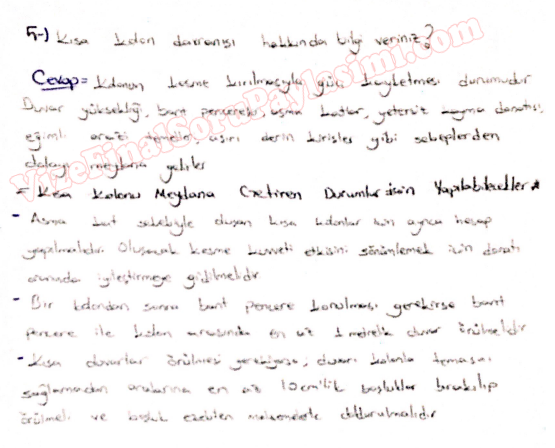 5-) Kısa kolon davranışı hakkında bilgi veriniz?
Cevap = Kolonun kesme kırılmasıyla güç kaybetmesi durumudur
Duvar yüksekliği, bant penceresi, asma katlar, yetersiz donatısı,
eğimli arazi temelin, aşırı derin kirişler gibi sebeplerden
dolayı meydana gelirler
= Kısa Kolonu Meydana Getiren Durumlar için Yapılabilecekler *
- Asma kat sebebiyle oluşan kısa kolonlar için ayrıca hesap
yapılmalıdır. Oluşacak kesme kuvveti etkisini sönümlemek için donatı
oranında iyileştirmeye gidilmelidir
- Bir kolondan sonra bant pencere konulması gerekirse bant
pencere ile kolon arasında en az 1 metrelik duvar örülmelidir
- Kısa duvarlar örülmesi gerekiyorsa, duvarı kolonla temasını
sağlamadan aralarına en az 10cm'lik boşluklar bırakılıp
örülmeli ve boşluk malzemelerle doldurulmalıdır
VizeFinalSoruPaylasimi.com